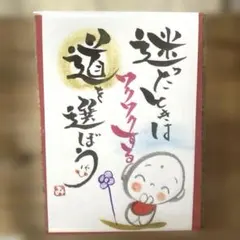 迷ったときは
ワクワクする
道を選ぼう